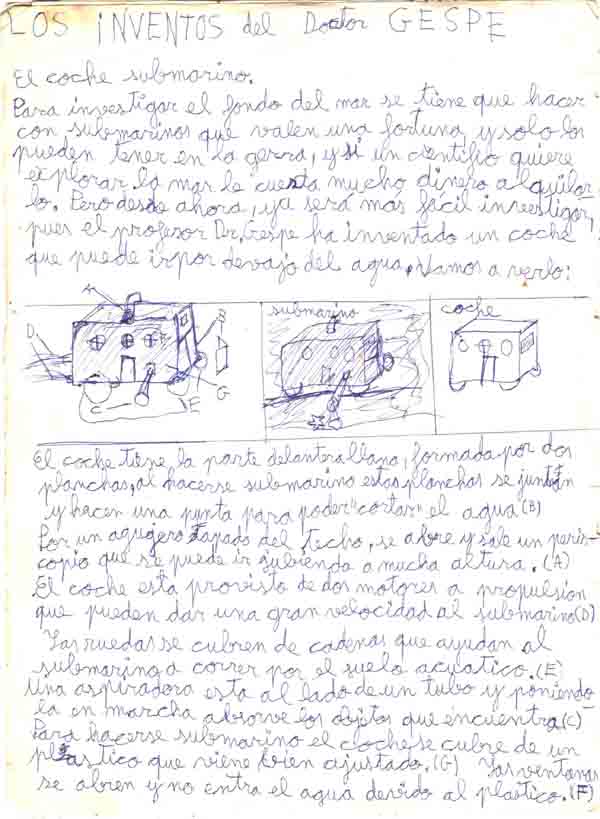 LOS iNVENTOS del Doctor GESPE
El coche submarino.
Para investigar el fondo del mar se tiene que hacer
con submarinos que valen una fortuna, y solo los
pueden tener en la gerra, y si un cientifio quiere
explorar la mar le cuesta mucho dinero alquilar-
lo. Pero desde ahora, ya sera mas facil investigar,
pues el profesor Dr. Gespe ha inventado un coche
que puede ir por devajo del agua. Vamos a verlo:
A
submarino
coche
D
B
F
G
C
E
El coche tiene la parte delantera llana, formada por dos
planchas, al hacerse submarino estas planchas se juntan
y hacen una punta para poder "cortar" el agua (B)
Por un agugero tapado del techo, se abre y sale un peris-
copio que se puede ir subiendo a mucha altura. (A)
El coche esta provisto de dos motores a propulsión
que pueden dar una gran velocidad al submarino (D)
Las ruedas se cubren de cadenas que ayudan al
submarino a correr por el suelo acuatico. (E)
Una aspiradora esta al lado de un tubo y poniendo-
la en marcha absorve los objetos que encuentra (C)
Para hacerse submarino el coche se cubre de un
plastico que viene bien ajustado. (G) Las ventanas
se abren y no entra el agua devido al plastico. (F)